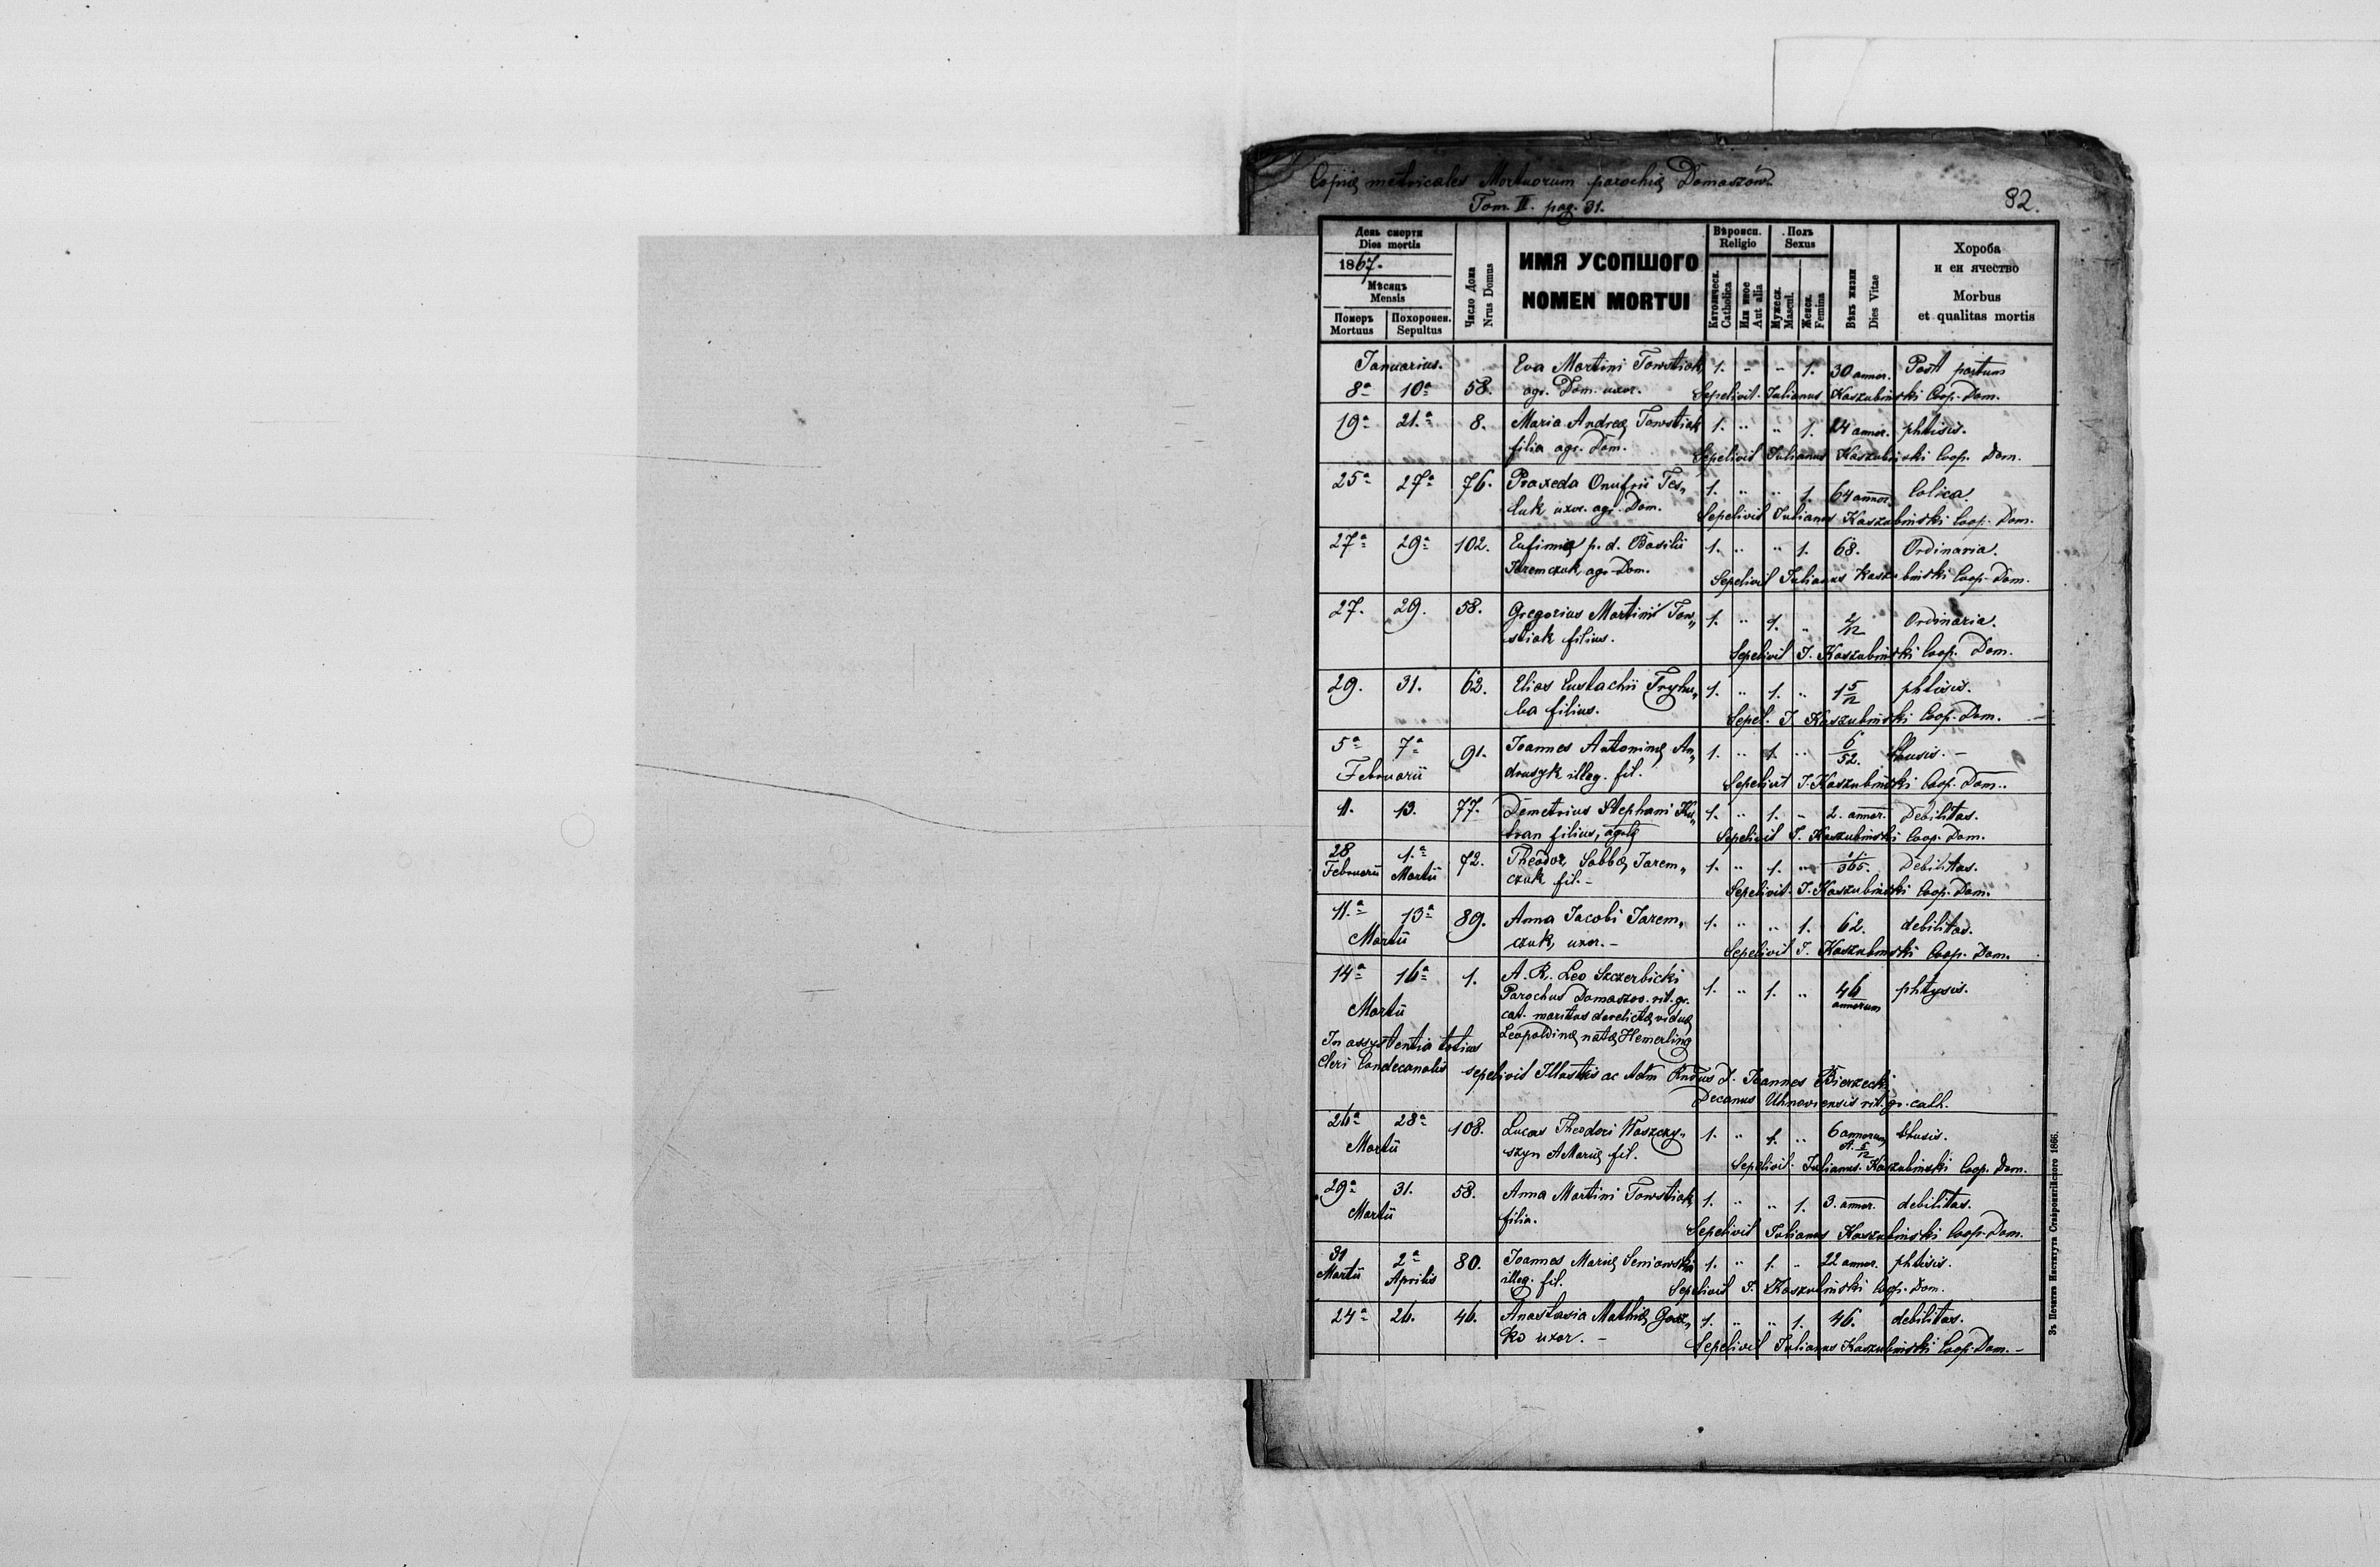 Copiæ metricales Mortuorum parochiæ Domaszów.
Tom. II. pag. 31.
82.
День смерти
Dies mortis
1867.
Мѣсяцъ
Mensis
Померъ
Mortuus
Похоронен.
Sepultus
Число Дома
Nrus Domus
ИМЯ УСОПШОГО
NOMEN MORTUI
Вѣроисп.
Religio
Католическ.
Catholica
Или иное
Aut alia
Полъ
Sexus
Мужеск.
Mascul.
Женск.
Femina
Вѣкъ жизни
Dies Vitae
Хороба
и еи ячество
Morbus
et qualitas mortis
Januarius. Eva Martini Towstiak, 1. " " 1. 30 annor. Post partum
8ª 10ª 58. agr. Dom. uxor. Sepelivit Julianus Kaszubinski Coop. Dom.
19ª 21.ª 8. Maria Andreæ Towstiak 1. " " 1. 24 annor. phtisis.
filia agr. Dom. Sepelivit Julianus Kaszubinski Coop. Dom.
25ª 27ª 76. Praxeda Onufrii Tes„ 1. " " 1. 64 annor. Colica.
luk uxor. agr. Dom. Sepelivit Julianus Kaszubinski Coop. Dom.
27ª 29ª 102. Eufimia p. d. Basilii 1. " " 1. 68. Ordinaria.
Jaremczuk, agr. Dom. Sepelivit Julianus Kaszubinski Coop. Dom.
27. 29. 58. Gregorius Martini Tow„ 1. " 1. " 2/12 Ordinaria.
stiak filius. Sepelivit J. Kaszubinski Coop. Dom.
29. 31. 62. Elias Eustachii Tryhu„ 1. " 1. " 1 5/12 phtisis.
ba filius. Sepel. J. Kaszubinski Coop. Dom.
5ª 7ª 91. Joannes Antoninæ An„ 1. " 1. " 6/52. tussis. –
Februarii drusyk illeg. fil. Sepelivit J. Kaszubinski Coop. Dom.
11. 13. 77. Demetrius Stephani Ku„ 1. " 1. " 2. annor. Debilitas.
tran filius, agrlæ Sepelivit J. Kaszubinski Coop. Dom.
28 1.ª 72. Theodor, Sabbæ Jarem„ 1. " 1. " /365. Debilitas.
Februarii Martii czuk fil. – Sepelivit J. Kaszubinski Coop. Dom.
11.ª 13ª 89. Anna Jacobi Jarem„ 1. " " 1. 62. debilitas.
Martii czuk, uxor. – Sepelivit J. Kaszubinski Coop. Dom.
14ª 16ª 1. A. R. Leo Szczerbicki 1. " 1. " 46 phtysis.
Martii Parochus Domaszov. rit. gr. annorum
cat. maritus derelictæ viduæ
Leopoldinæ natæ Hemerling
In assystentia totius
Cleri Condecanalis sepelivit Illustris ac Adm Rndus D. Joannes Bierzecki
Decanus Uhnoviensis rit. gr. cath.
26ª 28ª 108. Lucas Theodori Waszczy„ 1. " 1. " 6 annorum tussis.
Martii szyn A Mariæ fil. 5/12 Sepelivit Julianus Kaszubinski Coop. Dom.
29ª 31. 58. Anna Martini Towstiak, 1. " " 1. 3. annor. debilitas.
Martii filia. Sepelivit Julianus Kaszubinski Coop. Dom.
31 2ª 80. Joannes Mariæ Seniowska 1. " 1. " 22 annor. phtisis.
Martii Aprilis illeg. fil. Sepelivit J. Kaszubinski Coop. Dom.
24ª 26. 46. Anastasia Mathiæ Gosz„ 1. " " 1. 46. debilitas.
ko uxor. – Sepelivit Julianus Kaszubinski Coop. Dom. –
Зъ Печатни Института Ставропигійского 1866.